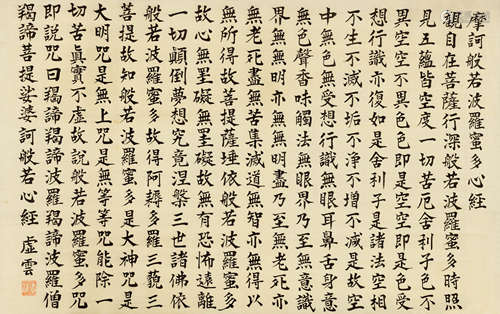 摩訶般若波羅蜜多心經
觀自在菩薩行深般若波羅蜜多時照
見五蘊皆空度一切苦厄舍利子色不
異空空不異色色即是空空即是色受
想行識亦復如是舍利子是諸法空相
不生不滅不垢不淨不增不減是故空
中無色無受想行識無眼耳鼻舌身意
無色聲香味觸法無眼界乃至無意識
界無無明亦無無明盡乃至無老死亦
無老死盡無苦集滅道無智亦無得以
無所得故菩提薩埵依般若波羅蜜多
故心無罣礙無罣礙故無有恐怖遠離
一切顛倒夢想究竟涅槃三世諸佛依
般若波羅蜜多故得阿耨多羅三藐三
菩提故知般若波羅蜜多是大神咒是
大明咒是無上咒是無等等咒能除一
切苦眞實不虛故說般若波羅蜜多咒
即說咒曰羯諦羯諦波羅羯諦波羅僧
羯諦菩提娑婆訶般若心經 虛雲